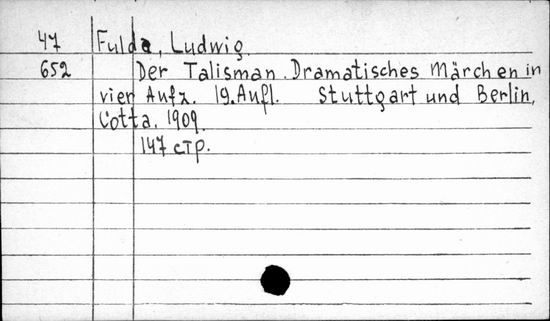 47 Fulda, Ludwig.
652 Der Talisman. Dramatisches Märchen in
vier Aufz. 19. Aufl. Stuttgart und Berlin,
Cotta, 1909.
147 стр.